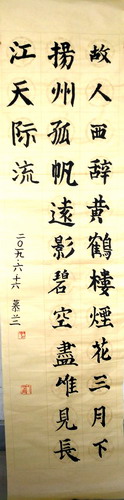 故人西辞黄鶴樓煙花三月下
揚州孤帆遠影碧空盡唯見長
江天际流
二〇一九·六·十六 慕兰